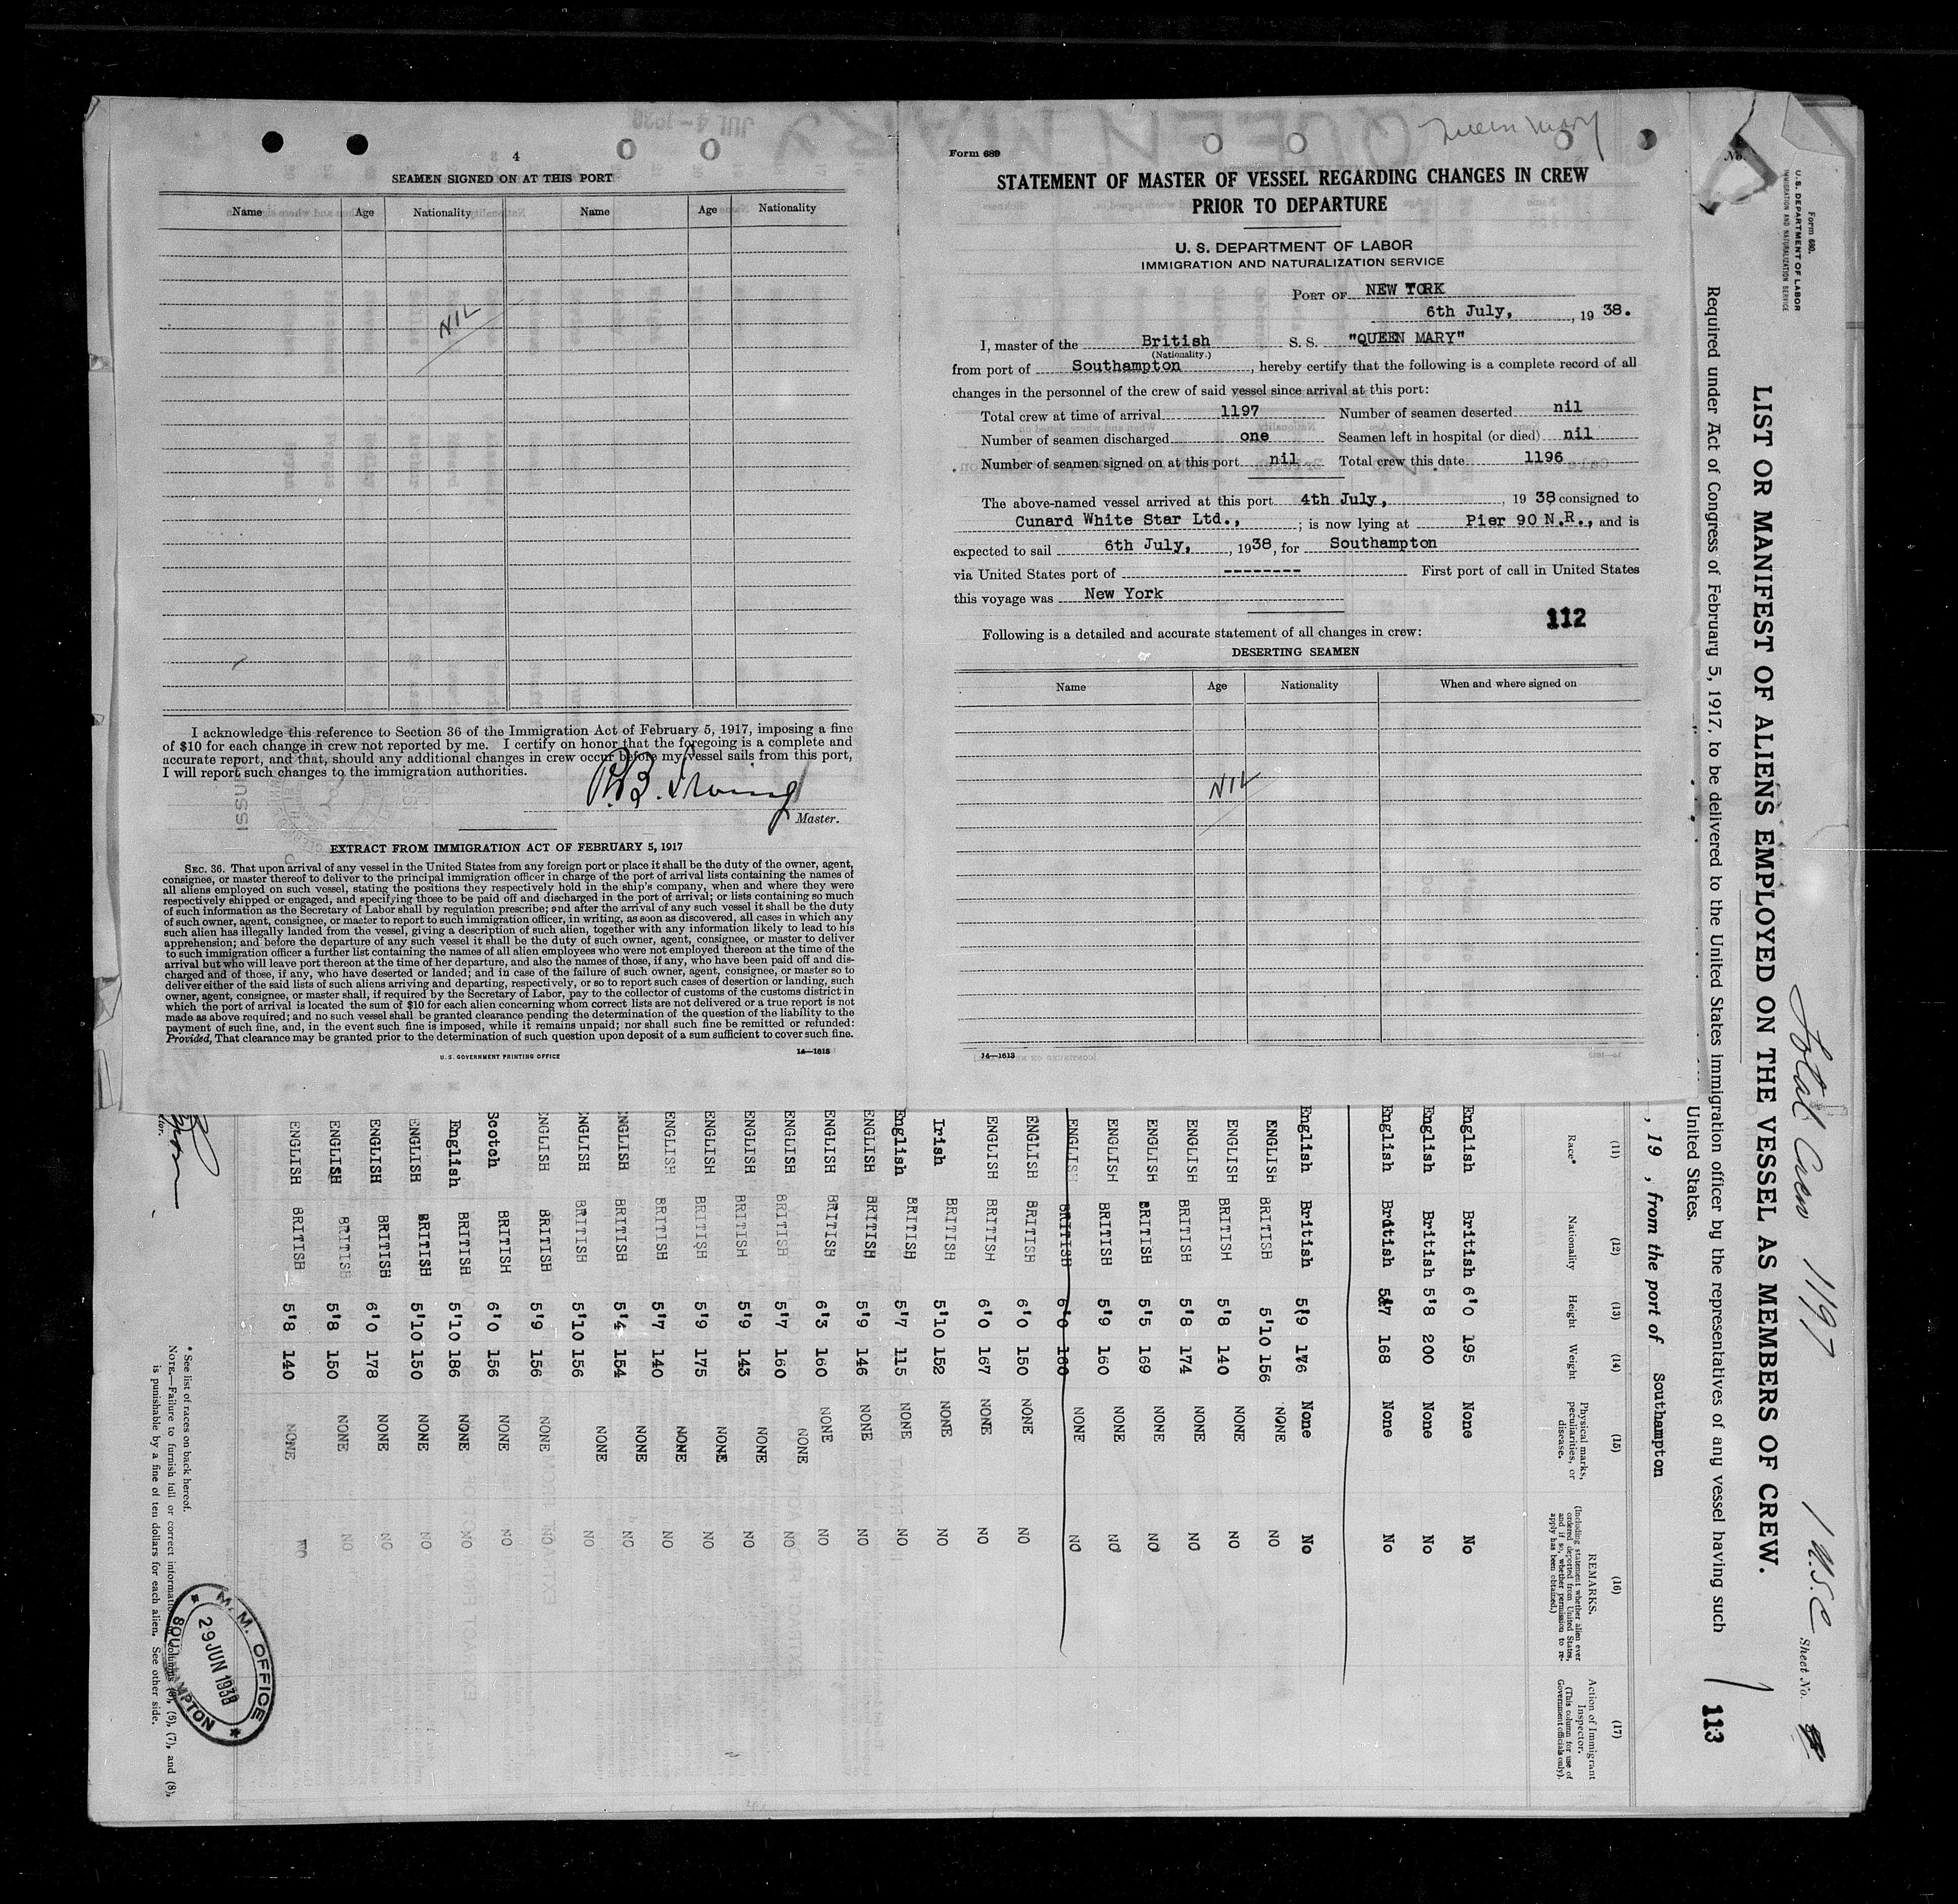 4
SEAMEN SIGNED ON AT THIS PORT
Name Age Nationality Name Age Nationality
NIL
I acknowledge this reference to Section 36 of the Immigration Act of February 5, 1917, imposing a fine
of $10 for each change in crew not reported by me. I certify on honor that the foregoing is a complete and
accurate report, and that, should any additional changes in crew occur before my vessel sails from this port,
I will report such changes to the immigration authorities.
Master.
EXTRACT FROM IMMIGRATION ACT OF FEBRUARY 5, 1917
SEC. 36. That upon arrival of any vessel in the United States from any foreign port or place it shall be the duty of the owner, agent,
consignee, or master thereof to deliver to the principal immigration officer in charge of the port of arrival lists containing the names of
all aliens employed on such vessel, stating the positions they respectively hold in the ship's company, when and where they were
respectively shipped or engaged, and specifying those to be paid off and discharged in the port of arrival; or lists containing so much
of such information as the Secretary of Labor shall by regulation prescribe; and after the arrival of any such vessel it shall be the duty
of such owner, agent, consignee, or master to report to such immigration officer, in writing, as soon as discovered, all cases in which any
such alien has illegally landed from the vessel, giving a description of such alien, together with any information likely to lead to his
apprehension; and before the departure of any such vessel it shall be the duty of such owner, agent, consignee, or master to deliver
to such immigration officer a further list containing the names of all alien employees who were not employed thereon at the time of the
arrival but who will leave port thereon at the time of her departure, and also the names of those, if any, who have been paid off and dis-
charged and of those, if any, who have deserted or landed; and in case of the failure of such owner, agent, consignee, or master so to
deliver either of the said lists of such aliens arriving and departing, respectively, or so to report such cases of desertion or landing, such
owner, agent, consignee, or master shall, if required by the Secretary of Labor, pay to the collector of customs of the customs district in
which the port of arrival is located the sum of $10 for each alien concerning whom correct lists are not delivered or a true report is not
made as above required; and no such vessel shall be granted clearance pending the determination of the question of the liability to the
payment of such fine, and, in the event such fine is imposed, while it remains unpaid; nor shall such fine be remitted or refunded:
Provided, That clearance may be granted prior to the determination of such question upon deposit of a sum sufficient to cover such fine.
U.S. GOVERNMENT PRINTING OFFICE 14—1613
Queen Mary
Form 689
STATEMENT OF MASTER OF VESSEL REGARDING CHANGES IN CREW
PRIOR TO DEPARTURE
U. S. DEPARTMENT OF LABOR
IMMIGRATION AND NATURALIZATION SERVICE
PORT OF NEW YORK
6th July, , 19 38.
I, master of the British S. S. "QUEEN MARY"
(Nationality.)
from port of Southampton, hereby certify that the following is a complete record of all
changes in the personnel of the crew of said vessel since arrival at this port:
Total crew at time of arrival 1197 Number of seamen deserted nil
Number of seamen discharged one Seamen left in hospital (or died) nil
Number of seamen signed on at this port nil Total crew this date 1196
The above-named vessel arrived at this port 4th July, , 19 38, consigned to
Cunard White Star Ltd., ; is now lying at Pier 90 N.R., and is
expected to sail 6th July, , 1938, for Southampton
via United States port of -------- First port of call in United States
this voyage was New York
112
Following is a detailed and accurate statement of all changes in crew:
DESERTING SEAMEN
Name Age Nationality When and where signed on
NIL
14—1613
No.
Form 680.
U.S. DEPARTMENT OF LABOR
IMMIGRATION AND NATURALIZATION SERVICE
Total Crew 1197 1 U.S.C
Sheet No.
LIST OR MANIFEST OF ALIENS EMPLOYED ON THE VESSEL AS MEMBERS OF CREW.
113
Required under Act of Congress of February 5, 1917, to be delivered to the United States immigration officer by the representatives of any vessel having such
United States.
, 19 , from the port of Southampton
(11) (12) (13) (14) (15) (16) (17)
Race* Nationality Height Weight Physical marks, peculiarities, or disease. REMARKS. (Including statement whether alien ever ordered deported from United States, and if so, whether permission to re-apply has been obtained.) Action of Immigrant Inspector. (This column for use of Government officials only).
English British 6'0 195 None No
English British 5'8 200 None No
English British 5'7 168 None No
English British 5'9 176 None No
ENGLISH BRITISH 5'10 156 NONE NO
ENGLISH BRITISH 5'8 140 NONE NO
ENGLISH BRITISH 5'8 174 NONE NO
ENGLISH BRITISH 5'5 169 NONE NO
ENGLISH BRITISH 5'9 160 NONE NO
ENGLISH BRITISH 6'0 160 NONE NO
ENGLISH BRITISH 6'0 150 NONE NO
ENGLISH BRITISH 6'0 167 NONE NO
Irish BRITISH 5'10 152 NONE NO
English BRITISH 5'7 115 NONE NO
ENGLISH BRITISH 5'9 146 NONE NO
ENGLISH BRITISH 6'3 160 NONE NO
ENGLISH BRITISH 5'7 160 NONE NO
ENGLISH BRITISH 5'9 143 NONE NO
ENGLISH BRITISH 5'9 175 NONE NO
ENGLISH BRITISH 5'7 140 NONE NO
ENGLISH BRITISH 5'4 154 NONE NO
ENGLISH BRITISH 5'10 156 NONE NO
ENGLISH BRITISH 5'9 156 NONE
Scotch BRITISH 6'0 156 NONE NO
English BRITISH 5'10 186 NONE NO
ENGLISH BRITISH 5'10 150 NONE NO
ENGLISH BRITISH 6'0 178 NONE NO
ENGLISH BRITISH 5'8 150 NONE NO
ENGLISH BRITISH 5'8 140 NONE NO
* See list of races on back hereof.
NOTE.—Failure to furnish full or correct information columns (5), (6), (7), and (8),
is punishable by a fine of ten dollars for each alien. See other side.
M.M. OFFICE
29 JUN 1938
SOUTHAMPTON